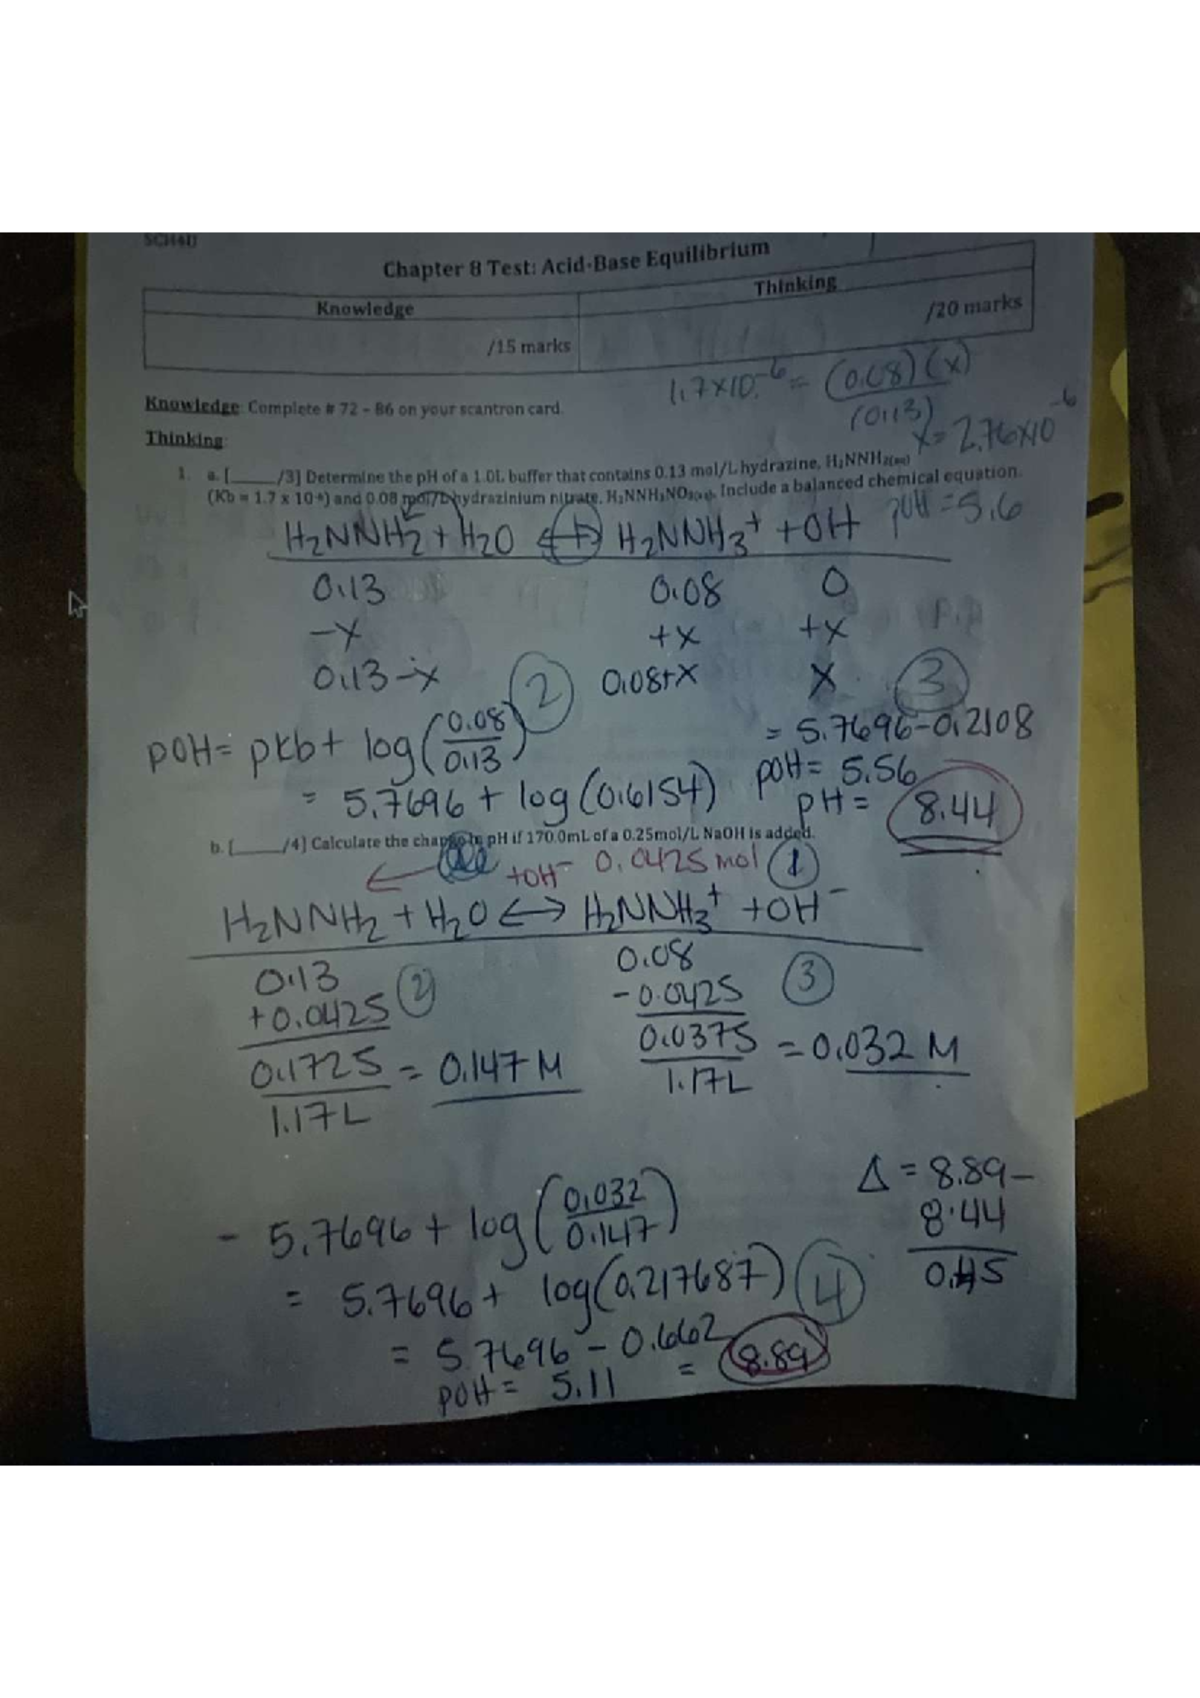 SCH4U
Chapter 8 Test: Acid-Base Equilibrium
Knowledge
Thinking
/15 marks
/20 marks
1.7×10⁻⁶ = (0.08)(x)
(0.13)
x = 2.76×10⁻⁶
Knowledge: Complete # 72 - 86 on your scantron card.
Thinking:
1. a. [_____/3] Determine the pH of a 1.0L buffer that contains 0.13 mol/L hydrazine, H₂NNH₂(aq)
(Kb = 1.7 x 10⁻⁶) and 0.08 mol/L hydrazinium nitrate, H₂NNH₃NO₃(aq). Include a balanced chemical equation.
H₂NNH₂ + H₂O ⟷ ① H₂NNH₃⁺ + OH
pOH = 5.6
0.13 0.08 0
-x +x +x
0.13-x ② 0.08+x x ③
pOH = pKb + log(0.08/0.13)
= 5.7696 - 0.2108
= 5.7696 + log(0.6154)
pOH = 5.56
pH = 8.44
b. [_____/4] Calculate the change in pH if 170.0mL of a 0.25mol/L NaOH is added.
← +OH⁻ 0.0425 mol ①
H₂NNH₂ + H₂O ⟷ H₂NNH₃⁺ + OH⁻
0.13 0.08
+0.0425 ② -0.0425 ③
0.1725 = 0.147 M 0.0375 = 0.032 M
1.17L 1.17L
Δ = 8.89 -
8.44
0.45
- 5.7696 + log(0.032/0.147)
= 5.7696 + log(0.217687) ④
= 5.7696 - 0.662
pOH = 5.11 = 8.89